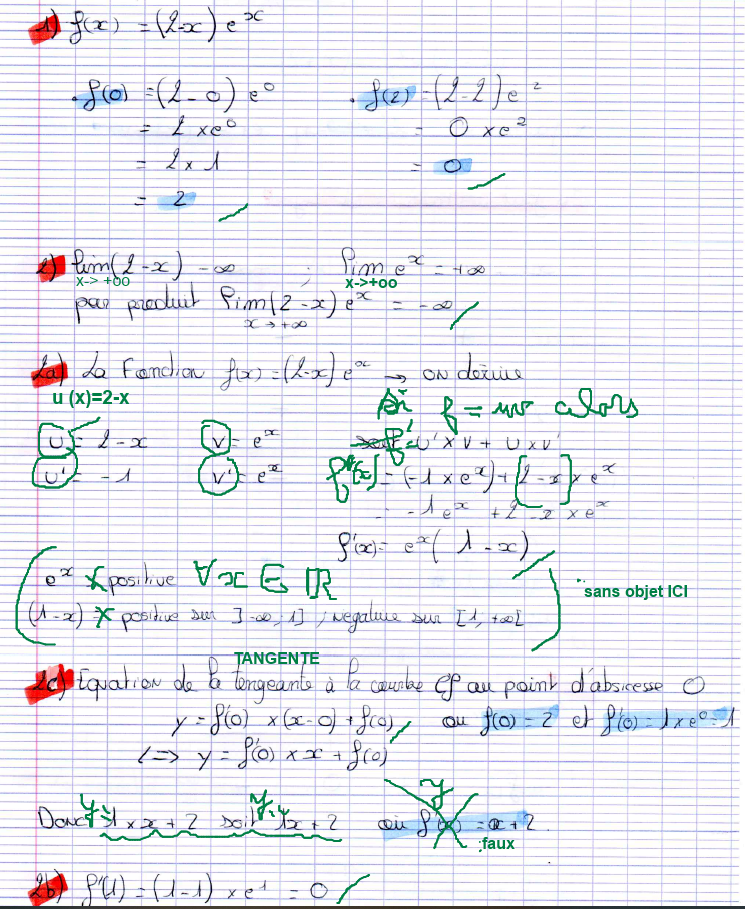 1) f(x) = (2-x) e^x
. f(0) = (2-0) e^0 . f(2) = (2-2) e^2
= 2 x e^0 = 0 x e^2
= 2 x 1 = 0
= 2
2) lim (2-x) -∞ ; lim e^x = +∞
x->+oo x->+oo
par produit lim (2-x) e^x = -∞
x→+∞
2a) La Fonction f(x) = (2-x) e^x → on dérive
u (x)=2-x
si f = uv alors
u = 2-x v = e^x f' = u' x v + u x v'
u' = -1 v' = e^x f'(x) = (-1 x e^x) + [2-x] x e^x
= -1 e^x + 2-x x e^x
f'(x) = e^x (1-x)
e^x positive ∀x ∈ ℝ
"sans objet ICI
(1-x) positive sur ]-∞, 1] ; négative sur [1, +∞[
TANGENTE
2c) Equation de la tengeante à la courbe Cf au point d'absicesse 0
y = f'(0) x (x-0) + f(0) ou f(0) = 2 et f'(0) = 1 x e^0 = 1
<=> y = f'(0) x x + f(0)
y
Donc y = 1 x x + 2 soit y = 1x + 2 où = x + 2
:faux
2b) f'(1) = (1-1) x e^1 = 0